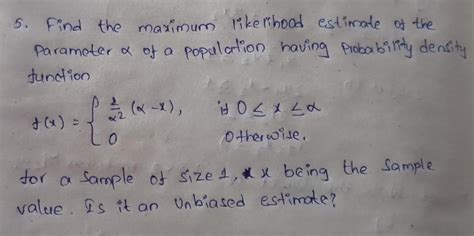 5. Find the maximum likelihood estimate of the
parameter α of a population having probability density
function
f(x) = { 2/α² (α-x), if 0 ≤ x ≤ α
0 Otherwise.
for a sample of size 1, x being the sample
value. Is it an unbiased estimate?